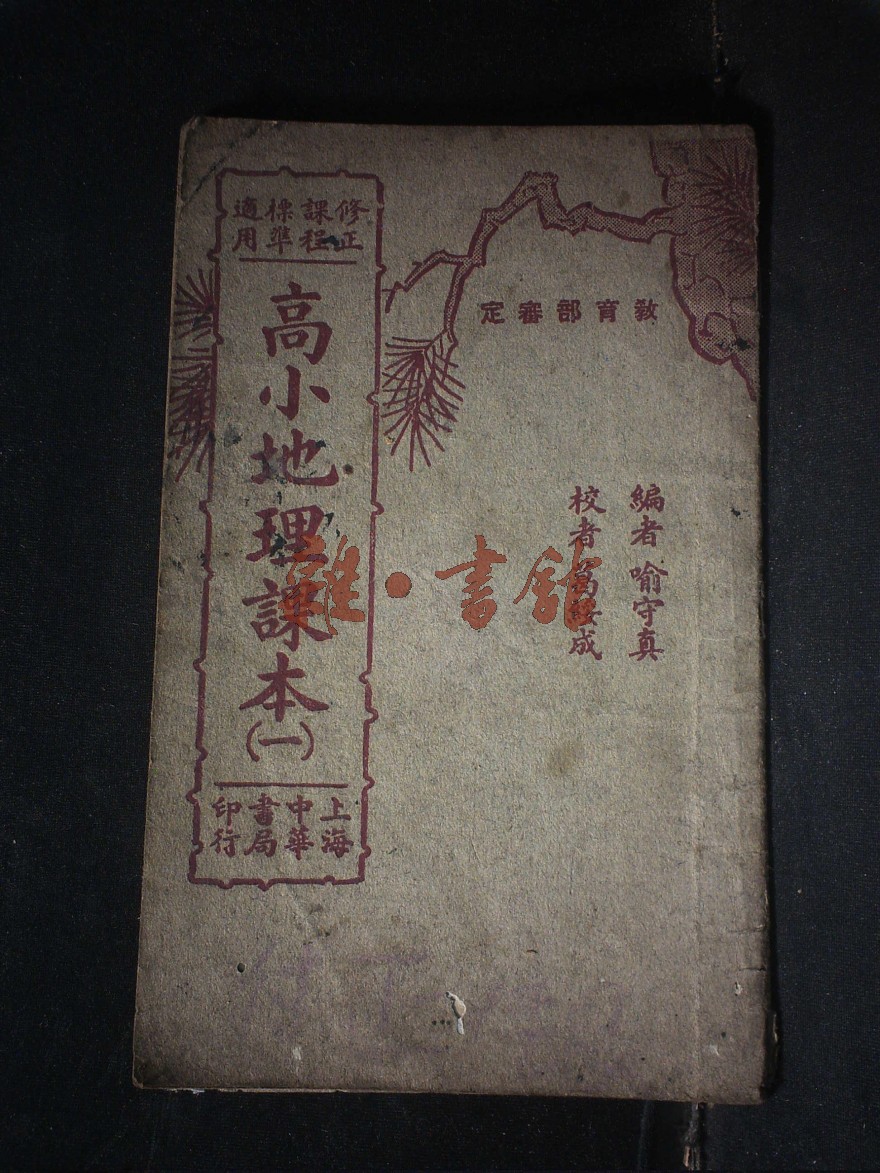 教育部審定
編者 喻守真
校者 葛綏成
修正課程標準適用
高小地理課本
(一)
上海中華書局印行
雜·書館